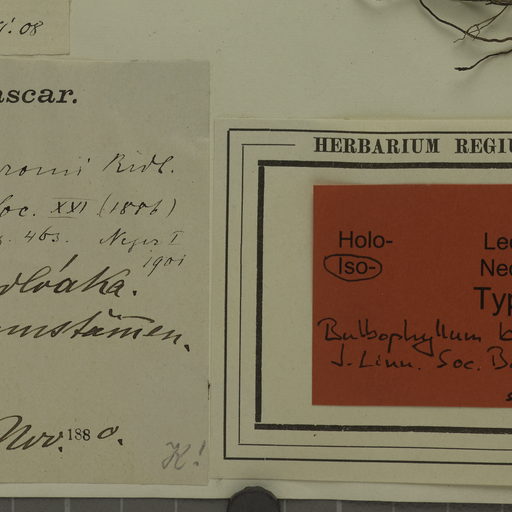 08
ascar.
Ridl.
oc. XXI (1886)
463.
1901
Baumstämmen.
Nov. 1880.
K!
HERBARIUM REGIU
Holo-
Iso-
Le
Ne
Typ
Bulbophyllum b
J. Linn. Soc. Bo